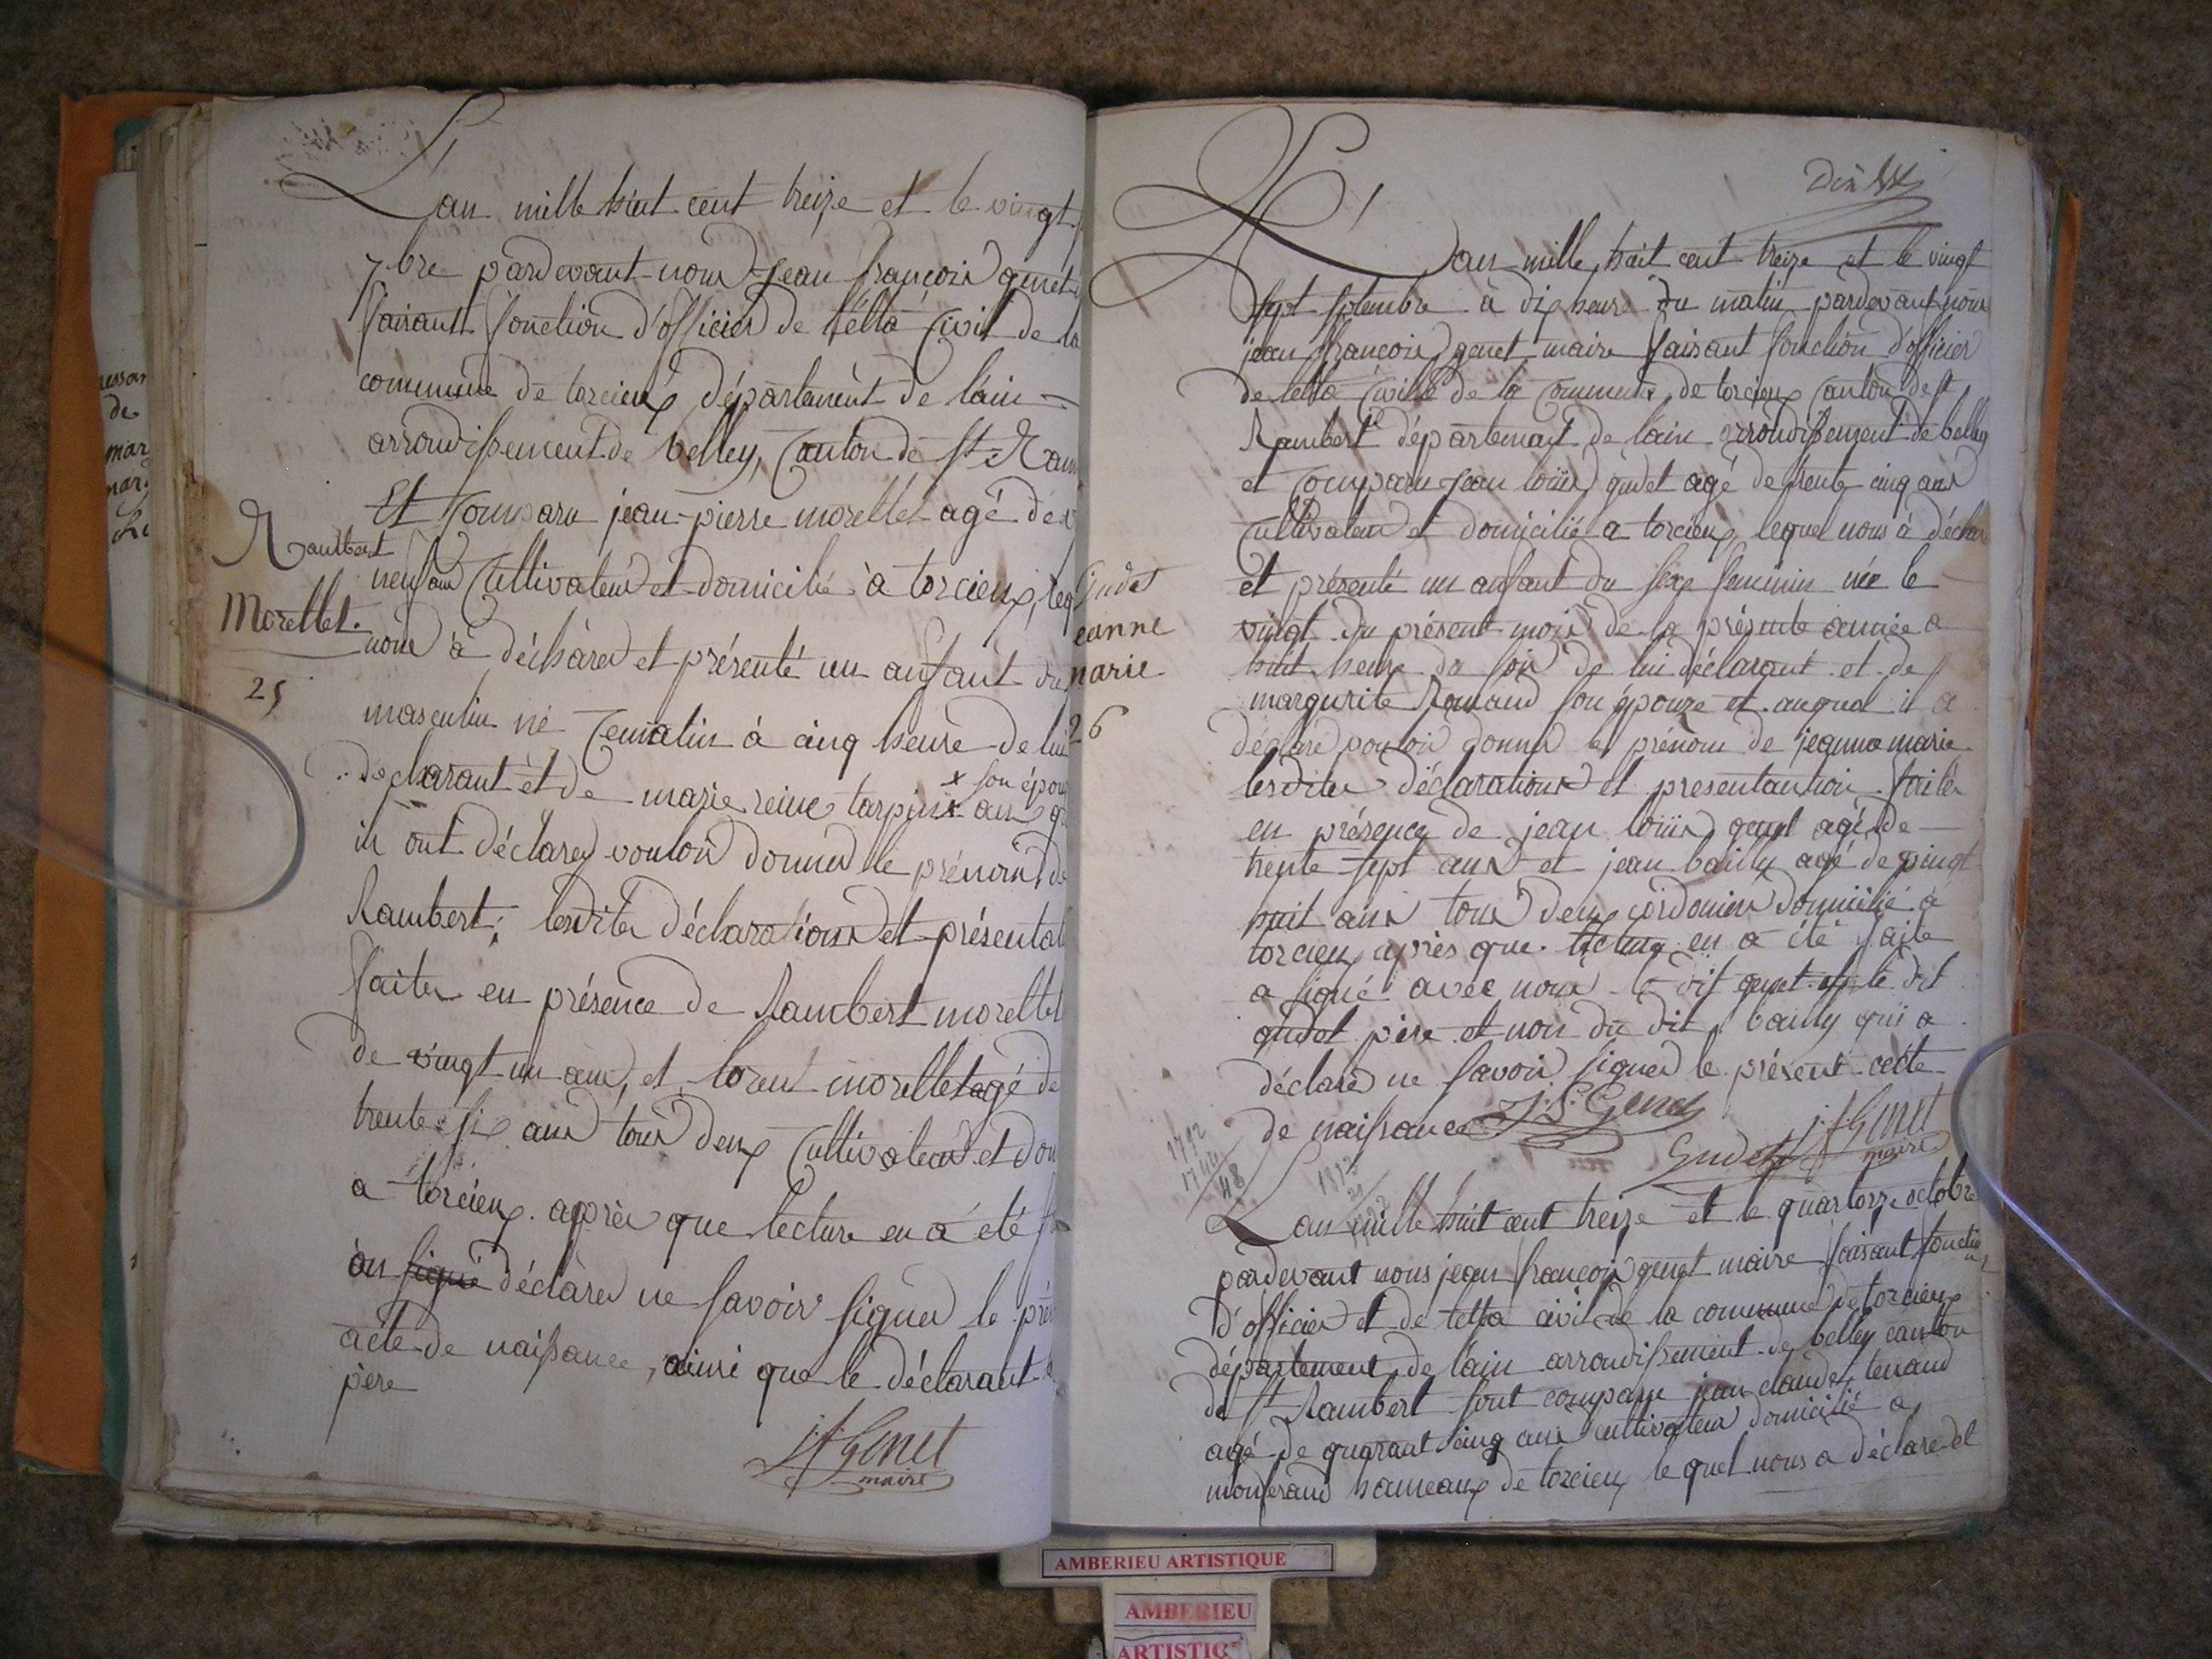 L'an mille huit cent treize et le vingt
7bre pardevant nous Jean françois genet
faisant fonction d'officier de l'étta Civil de la
commune de torcieux département de l'ain
arrondissement de belley, Canton de St Ram
Et Comparu jean-pierre morellet agé de
neuf ans Cultivateur et domicilié à torcieux, leq
nous à déclarer et présenté un anfant du
masculin né Cematin à cinq heure de lui
déclarant et de marie reine tarpin x au q
x son épou
il ont déclarez vouloir donner le prénom de
Rambert; lesdites déclarations et présentat
faites en présence de Rambert morellet
de vingt un ans, et lorent morellet agé de
trente six ans tous deux Cultivateur et dom
a torcieux. après que lecture en a été f
on signé déclarer ne savoir signer le pré
acte de naissance, ainsi que le déclarant
père
JfGenet
maire
Rambert
Morellet.
25
L'an mille huit cent treize et le vingt
sept septembre à dix heure du matin pardevant nous
jean françois genet maire faisant fonction d'officier
de l'étta Civille de la Commune de torcieux Canton de St
Rambert département de l'ain arrondissement de belley
et Comparu Jean loüis gudet agé de trente cinq ans
Cultivateur et domicilié a torcieux, lequel nous à déclar
et présenté un anfant du sexe feminin née le
vingt du présent mois de la présente année a
huit heure du soir de lui déclarant et de
margurite Ravaud son épouze et auquel il a
déclaré vouloir donner le prénom de jeanne marie
lesdites déclarations et presentantion faites
en présence de jean loüis genet agé de
trente sept ans et jean bailly agé de vingt
huit ans tous deux cordonier domicilié à
torcieux après que lecture en a été faite
a signé avec nous le dit genet et le dit
gudet père et non du dit bailly qui a
déclaré ne savoir signer le présent acte
de naissance J.L. Genet
Gudet JfGenet
maire
Gudet
eanne
marie
26
1792
1744
48
1813
L'an mille huit cent treize et le quartorze octobre
pardevant nous jean françois genet maire faisant fonction
d'officier et de letta civil de la commune de torcieux
département de l'ain arrondissement de belley canton
de St Rambert sont comparu jean claude tenand
agé de quarant cinq ans cultivateur domicilié a
montferand hameaux de torcieux le quel nous a déclaré et
essan
de
mar
mar
AMBERIEU ARTISTIQUE
AMBERIEU
ARTISTIQ